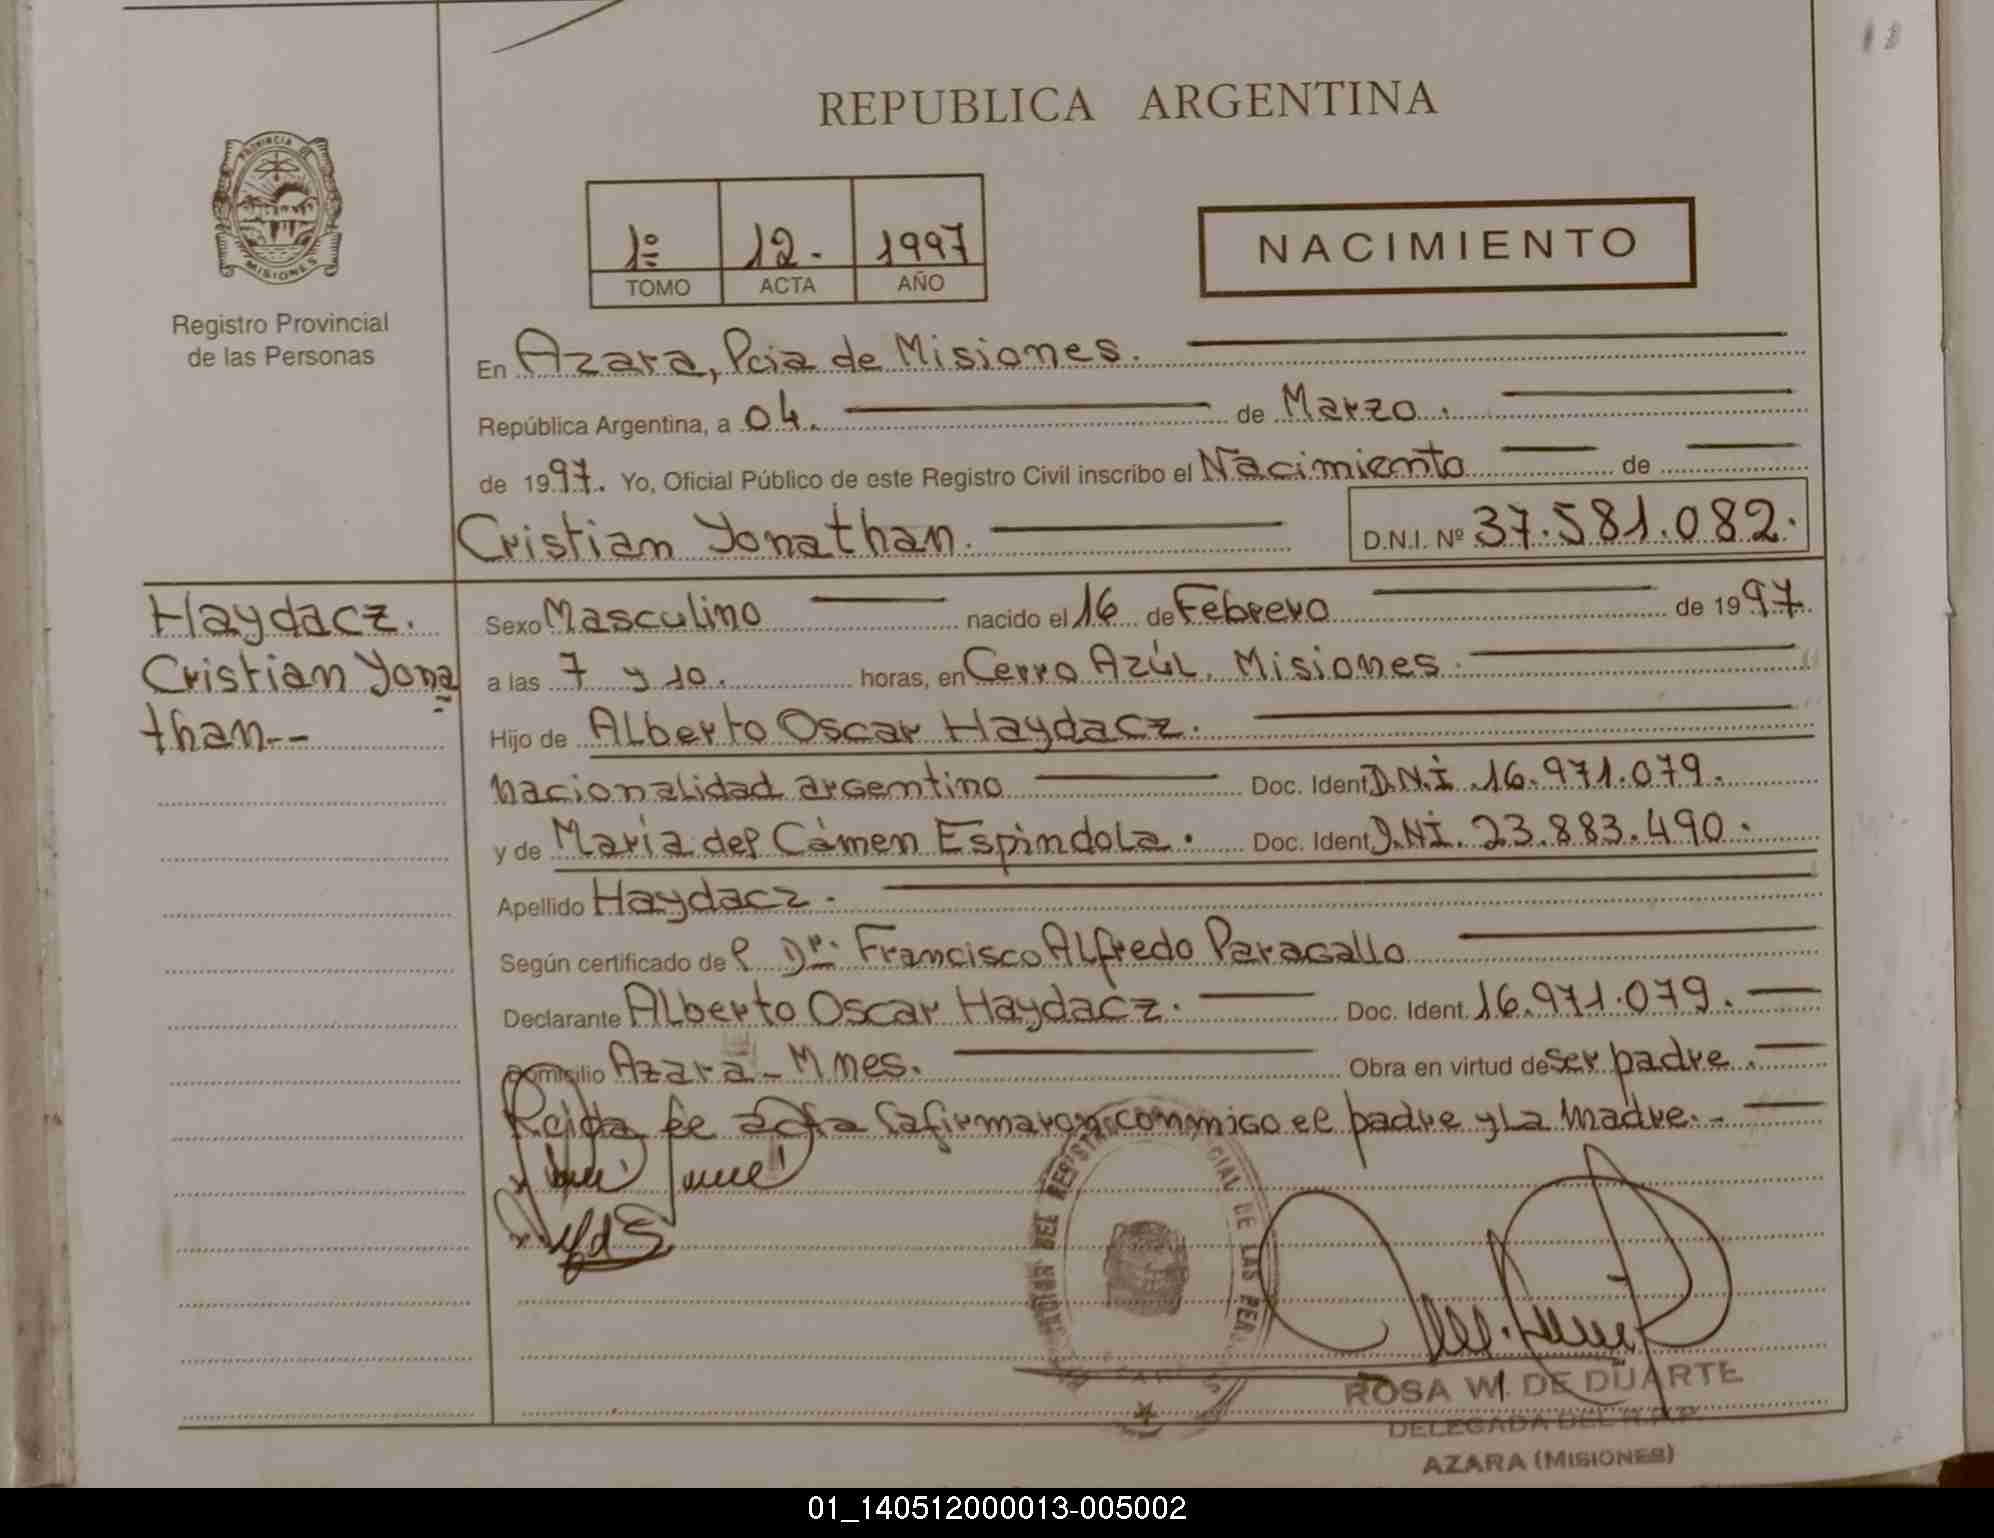 REPUBLICA ARGENTINA
PROVINCIA DE
MISIONES
Registro Provincial
de las Personas
1º 12. 1997
TOMO ACTA AÑO
NACIMIENTO
En Azara, Pcia de Misiones.
República Argentina, a 04. de Marzo.
de 1997. Yo, Oficial Público de este Registro Civil inscribo el Nacimiento de
Cristian Yonathan. D.N.I. Nº 37.581.082.
Haydacz.
Cristian Yona=
than--
Sexo Masculino nacido el 16 de Febrero de 1997.
a las 7 y 10. horas, en Cerro Azúl, Misiones.
Hijo de Alberto Oscar Haydacz.
nacionalidad argentino Doc. Ident D.N.I. 16.971.079.
y de María del Cámen Espindola. Doc. Ident D.NI. 23.883.490.
Apellido Haydacz.
Según certificado de l Dr. Francisco Alfredo Paragallo
Declarante Alberto Oscar Haydacz. Doc. Ident. 16.971.079.
Domicilio Azara - Mnes. Obra en virtud de ser padre.
acta firmaron conmigo el padre y La Madre.-
DEL REGISTRO DE LAS PER
ROSA W. DE DUARTE
DELEGADA DEL R.P.P.
AZARA (MISIONES)
01_140512000013-005002